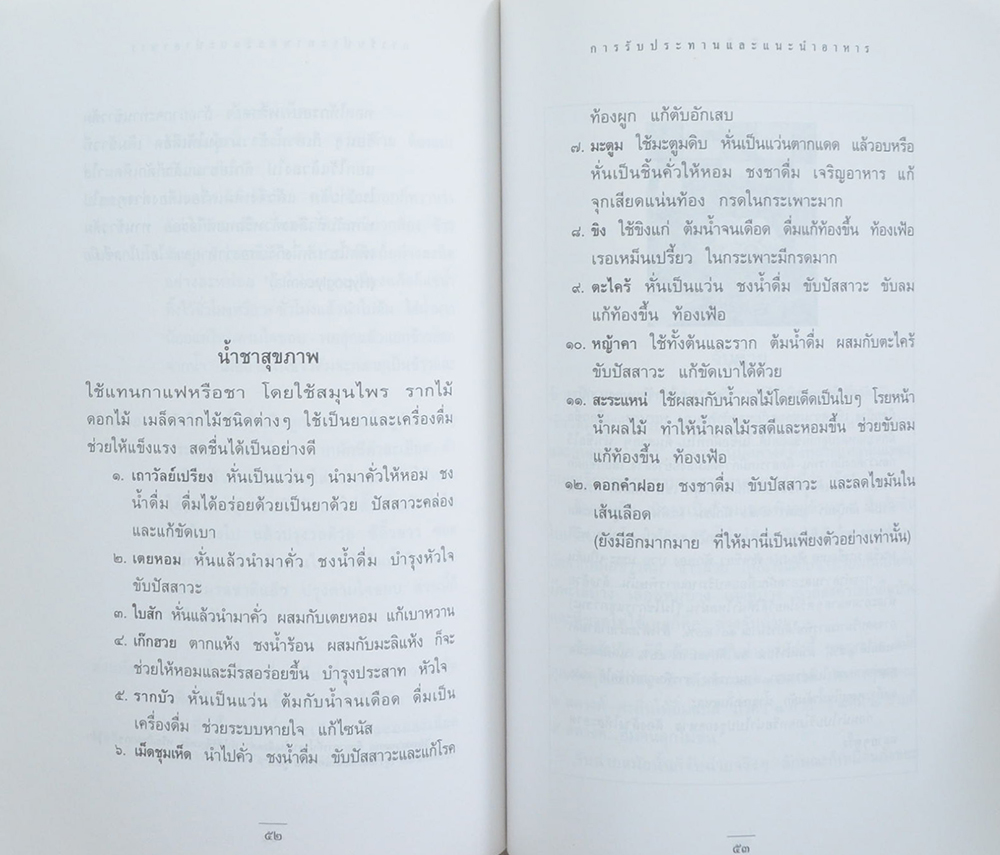 น้ำชาสุขภาพ
ใช้แทนกาแฟหรือชา โดยใช้สมุนไพร รากไม้
ดอกไม้ เมล็ดจากไม้ชนิดต่างๆ ใช้เป็นยาและเครื่องดื่ม
ช่วยให้แข็งแรง สดชื่นได้เป็นอย่างดี
๑. เถาวัลย์เปรียง หั่นเป็นแว่นๆ นำมาคั่วให้หอม ชง
น้ำดื่ม ดื่มได้อร่อยด้วยเป็นยาด้วย ปัสสาวะคล่อง
และแก้ขัดเบา
๒. เตยหอม หั่นแล้วนำมาคั่ว ชงน้ำดื่ม บำรุงหัวใจ
ขับปัสสาวะ
๓. ใบสัก หั่นแล้วนำมาคั่ว ผสมกับเตยหอม แก้เบาหวาน
๔. เก๊กฮวย ตากแห้ง ชงน้ำร้อน ผสมกับมะลิแห้ง ก็จะ
ช่วยให้หอมและมีรสอร่อยขึ้น บำรุงประสาท หัวใจ
๕. รากบัว หั่นเป็นแว่น ต้มกับน้ำจนเดือด ดื่มเป็น
เครื่องดื่ม ช่วยระบบหายใจ แก้ไซนัส
๖. เม็ดชุมเห็ด นำไปคั่ว ชงน้ำดื่ม ขับปัสสาวะและแก้โรค
๕๒
การรับประทานและแนะนำอาหาร
ท้องผูก แก้ตับอักเสบ
๗. มะตูม ใช้มะตูมดิบ หั่นเป็นแว่นตากแดด แล้วอบหรือ
หั่นเป็นชิ้นคั่วให้หอม ชงชาดื่ม เจริญอาหาร แก้
จุกเสียดแน่นท้อง กรดในกระเพาะมาก
๘. ขิง ใช้ขิงแก่ ต้มน้ำจนเดือด ดื่มแก้ท้องขึ้น ท้องเฟ้อ
เรอเหม็นเปรี้ยว ในกระเพาะมีกรดมาก
๙. ตะไคร้ หั่นเป็นแว่น ชงน้ำดื่ม ขับปัสสาวะ ขับลม
แก้ท้องขึ้น ท้องเฟ้อ
๑๐. หญ้าคา ใช้ทั้งต้นและราก ต้มน้ำดื่ม ผสมกับตะไคร้
ขับปัสสาวะ แก้ขัดเบาได้ด้วย
๑๑. สะระแหน่ ใช้ผสมกับน้ำผลไม้โดยเด็ดเป็นใบๆ โรยหน้า
น้ำผลไม้ ทำให้น้ำผลไม้รสดีและหอมขึ้น ช่วยขับลม
แก้ท้องขึ้น ท้องเฟ้อ
๑๒. ดอกคำฝอย ชงชาดื่ม ขับปัสสาวะ และลดไขมันใน
เส้นเลือด
(ยังมีอีกมากมาย ที่ให้มานี่เป็นเพียงตัวอย่างเท่านั้น)
๕๓